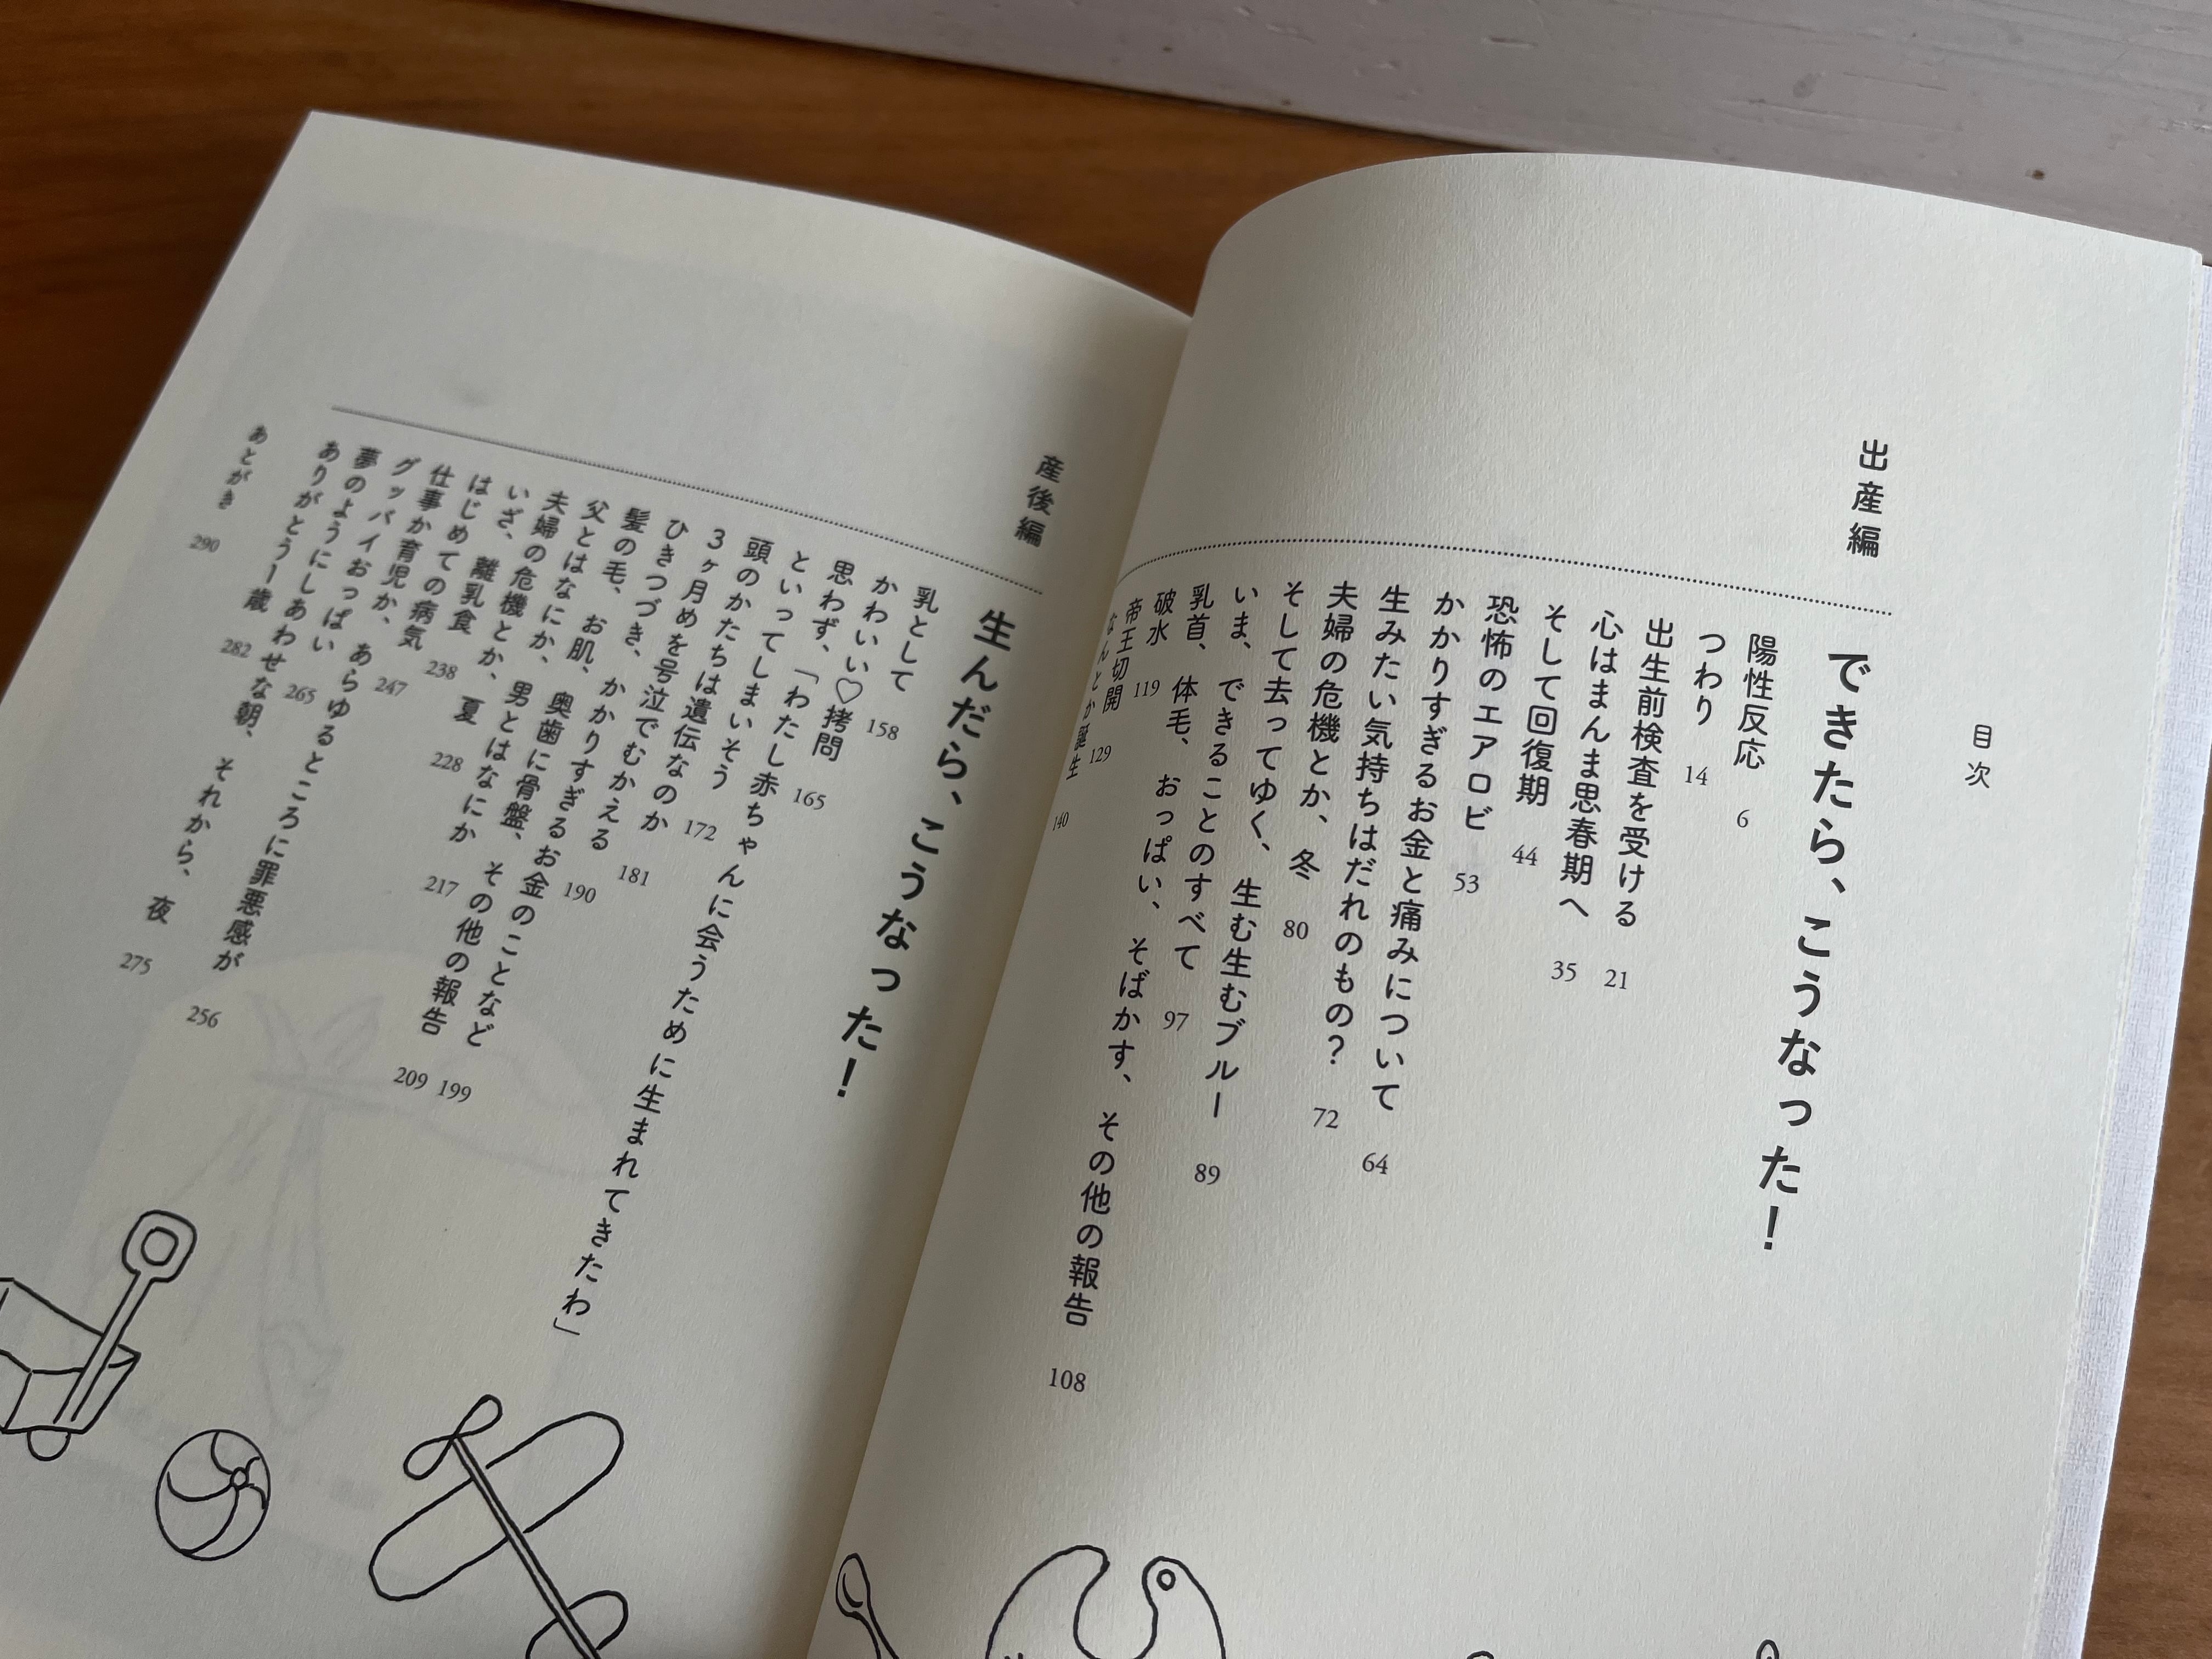 目次
出産編
できたら、こうなった！
陽性反応 6
つわり 14
出生前検査を受ける 21
心はまんま思春期へ 35
そして回復期 44
恐怖のエアロビ 53
かかりすぎるお金と痛みについて 64
生みたい気持ちはだれのもの？ 72
夫婦の危機とか、冬 80
そして去ってゆく、生む生むブルー 89
いま、できることのすべて 97
乳首、体毛、おっぱい、そばかす、その他の報告 108
破水 119
帝王切開 129
なんとか誕生 140
産後編
生んだら、こうなった！
乳として 158
かわいい♡拷問 165
思わず、「わたし赤ちゃんに会うために生まれてきたわ」
といってしまいそう 172
頭のかたちは遺伝なのか 181
3ヶ月めを号泣でむかえる 190
ひきつづき、かかりすぎるお金のことなど 199
髪の毛、お肌、奥歯に骨盤、その他の報告 209
父とはなにか、男とはなにか 217
夫婦の危機とか、夏 228
いざ、離乳食 238
はじめての病気 247
仕事か育児か、あらゆるところに罪悪感が 256
グッバイおっぱい 265
夢のようにしあわせな朝、それから、夜 275
ありがとう1歳 282
あとがき 290